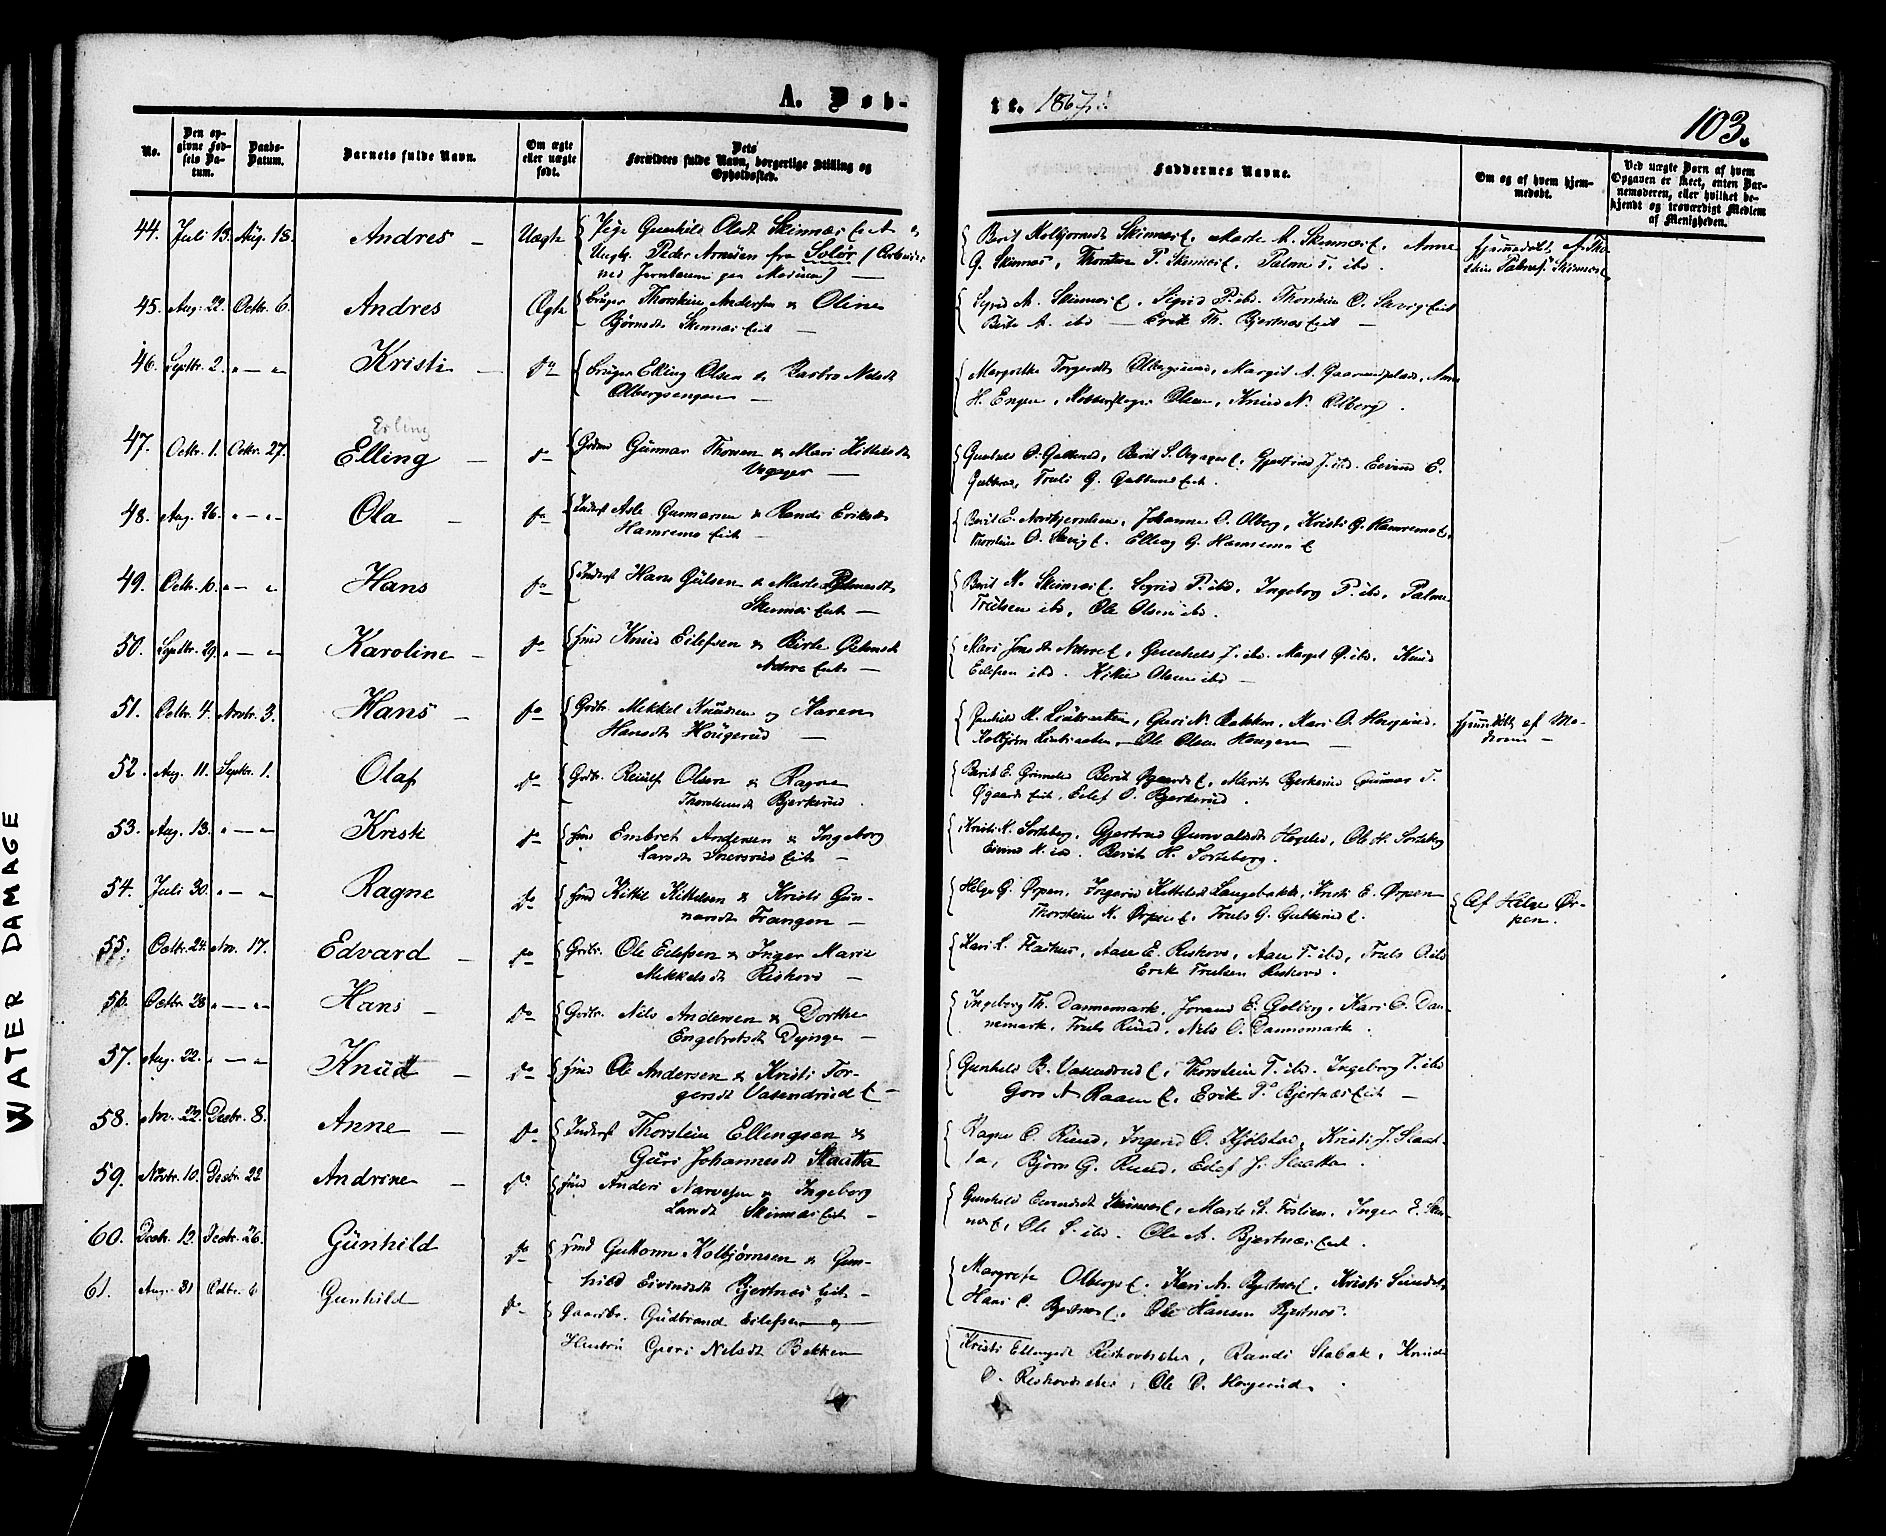 WATER DAMAGE
A. Døb-
te. 1867.
103.
No.
Den op-
givne Fød-
sels Da-
tum.
Daabs-
Datum.
Barnets fulde Navn.
Om ægte
eller uægte
født.
Dets
Forældres fulde Navn, borgerlige Stilling og
Opholdssted.
Faddernes Navne.
Om og af hvem hjem-
medøbt.
Ved uægte Børn af hvem
Opgaven er skeet, enten Bar-
nemoderen, eller hvilket be-
kjendt og troværdigt Medlem
af Menigheden.
44. Juli 13. Aug. 18. Andres – Uægte Pige Gunhild Olsdt Skinnes
Ungk. Peder Arnesen fra Solør (Arbeider
ved Jernbanen paa Modum) –
Berit Kolbjørnsdt Skinnes, Marte A. Skinnes, Anne
G. Skinnes, Thorstein P. Skinnes, Palme T. ibd.
Hjemmedøbt af
Palme Skinnes
45. Aug. 22. Octbr. 6. Andres Ægte Bruger Thorstein Andersen & Oline
Bjørnsdt Skinnes Eie –
Sigrid P. ibd. Thorstein O. Savig
Birte A. ibd – Erik Th. Bjertnes Eie –
46. Septbr. 2. " – " Kristi – do Bruger Elling Olsen & Barbro Nilsdt
Olbergsengen –
Margrethe Torgersdt Olbergseie, Margit A.
H. Engen, Olsen, Knud N. Olberg.
47. Octbr. 1. Octbr. 27. Erling
Elling – do Gunnar Thoresen & Mari Kittelsdt
–
Gunhild O. Gulsrud, Berit S. Gjertrud J. ibd. Eivind E.
Gulsrud, Truls G. Gulsrud Eie.
48. Aug. 26. " – " Ola – do Inderst Asle Gunnarsen & Randi Eriksdt
Hamremo Eie –
Berit E. Johanne O. Olberg, Kristi G. Hamremo,
Thorstein O. Savig. Elling G. Hamremo
49. Octbr. 10. " – " Hans do Inderst Hans Gulsen & Marte Palmesdt
Skinnes Eie –
Berit N. Skinnes, Sigrid P. ibd, Ingeborg P. ibd, Palme
Trulsen ibd, Ole Olsen ibd.
50. Septbr. 29. " – " Karoline – do Hmd Knud Eilefsen & Birte
Nerre Eie –
Mari Jonsdt Nerre, Gunhild J. ibd. Margit G. ibd. Knud
Eilefsen ibd. Kittil Olsen ibd –
51. Octbr. 4. Novbr. 3. Hans – do Grdbr. Mikkel Knudsen og Karen
Hansdt Høugerud –
Gunhild K. Guri N. Bakken, Kari O. Hougerud.
Kolbjørn – Ole Olsen Hougen –
Hjemdøbt af Mo-
deren –
52. Aug. 11. Septbr. 1. Olaf do Grdbr. Reiulf Olsen & Ragne
Thorsteinsdt Bjerkerud.
Berit E. Grimelie Berit Øgaards, Marit Bjerkerud Gunnar T.
Øgaards Eie, Eilef O. Bjerkerud.
53. Aug. 13. " – " Kristi do Hmd Embret Andersen & Ingeborg
Larsdt Snersrud Eie –
Kristi K. Sorteberg, Gjertrud Gunvaldsdt Høgelie, Ole H. Sorteberg
Eivind K. ibd. Berit H. Sorteberg.
54. Juli 30. " – " Ragne do Hmd Kittil Kittelsen & Kristi Gun-
narsdt Trangen –
Helge G. Ørpen, Ingerid Kittelsd Langebakk, Kristi E. Ørpen
Thorstein K. Ørpen, Truls G. Gulsrud.
Af Helge Ør-
pen.
55. Octbr. 24. Nov. 17. Edvard – do Grdbr. Ole Eilefsen & Inger Marie
Mikkelsdt Riskovs –
Kari L. Flaskerud, Aase E. Riskovs, Aase T. ibd, Truls O. ibd
Erik Trulsen Riskovs.
56. Octbr. 28 " – " Hans – do Grdbr. Nils Andersen & Dorthe
Engebretsdt Dynge –
Ingeborg Th. Dannemark, Jorand E. Golberg, Kari O. Dan-
nemark, Truls Ruud, Nils O. Dannemark.
57. Aug. 22. " – " Knud – do Hmd Ole Andersen & Kristi Tor-
gersdt Vatsendrud –
Gunhild B. Vatsendrud, Thorstein T. ibd. Ingeborg T. ibd
Goro N. Raaen, Erik T. Bjertnes Eie –
58. Nov. 22. Decbr. 8. Anne – do Inderst Thorstein Ellingsen &
Guri Johannesdt Slaatta
Ragne O. Ruud, Ingerid O. Kjølstad, Kristi J. Slaat-
ta, Bjørn G. Ruud, Eilef J. Slaatta.
59. Novbr. 10. Decbr. 22 Andrine – do Hmd Anders Narvesen & Ingeborg
Larsdt Skinnes Eie –
Gunhild Skinnes, Marte S. Foslien, Inger E. Skin-
nes, Ole S. ibd. Ole A. Bjertnes Eie.
60. Decbr. 12. Decbr. 26. Gunhild do Hmd Guttorm Kolbjørnsen & Gun-
hild Eivindsdt Bjertnes Eie –
Margrete Olbergs. Kari A. Bjertnes, Kristi
Hans O. Bjertnes. Ole Hansen Bjertnes.
61. Aug. 31 Octbr. 6 Gunhild do Gaardbr. Gudbrand Eilefsen og
Hustru Guri Nilsdt Bekken
Kristi Ellingsdt Riskovseter, Randi Stabak, Knud
O. Riskovseter, Ole O. Hougerud.